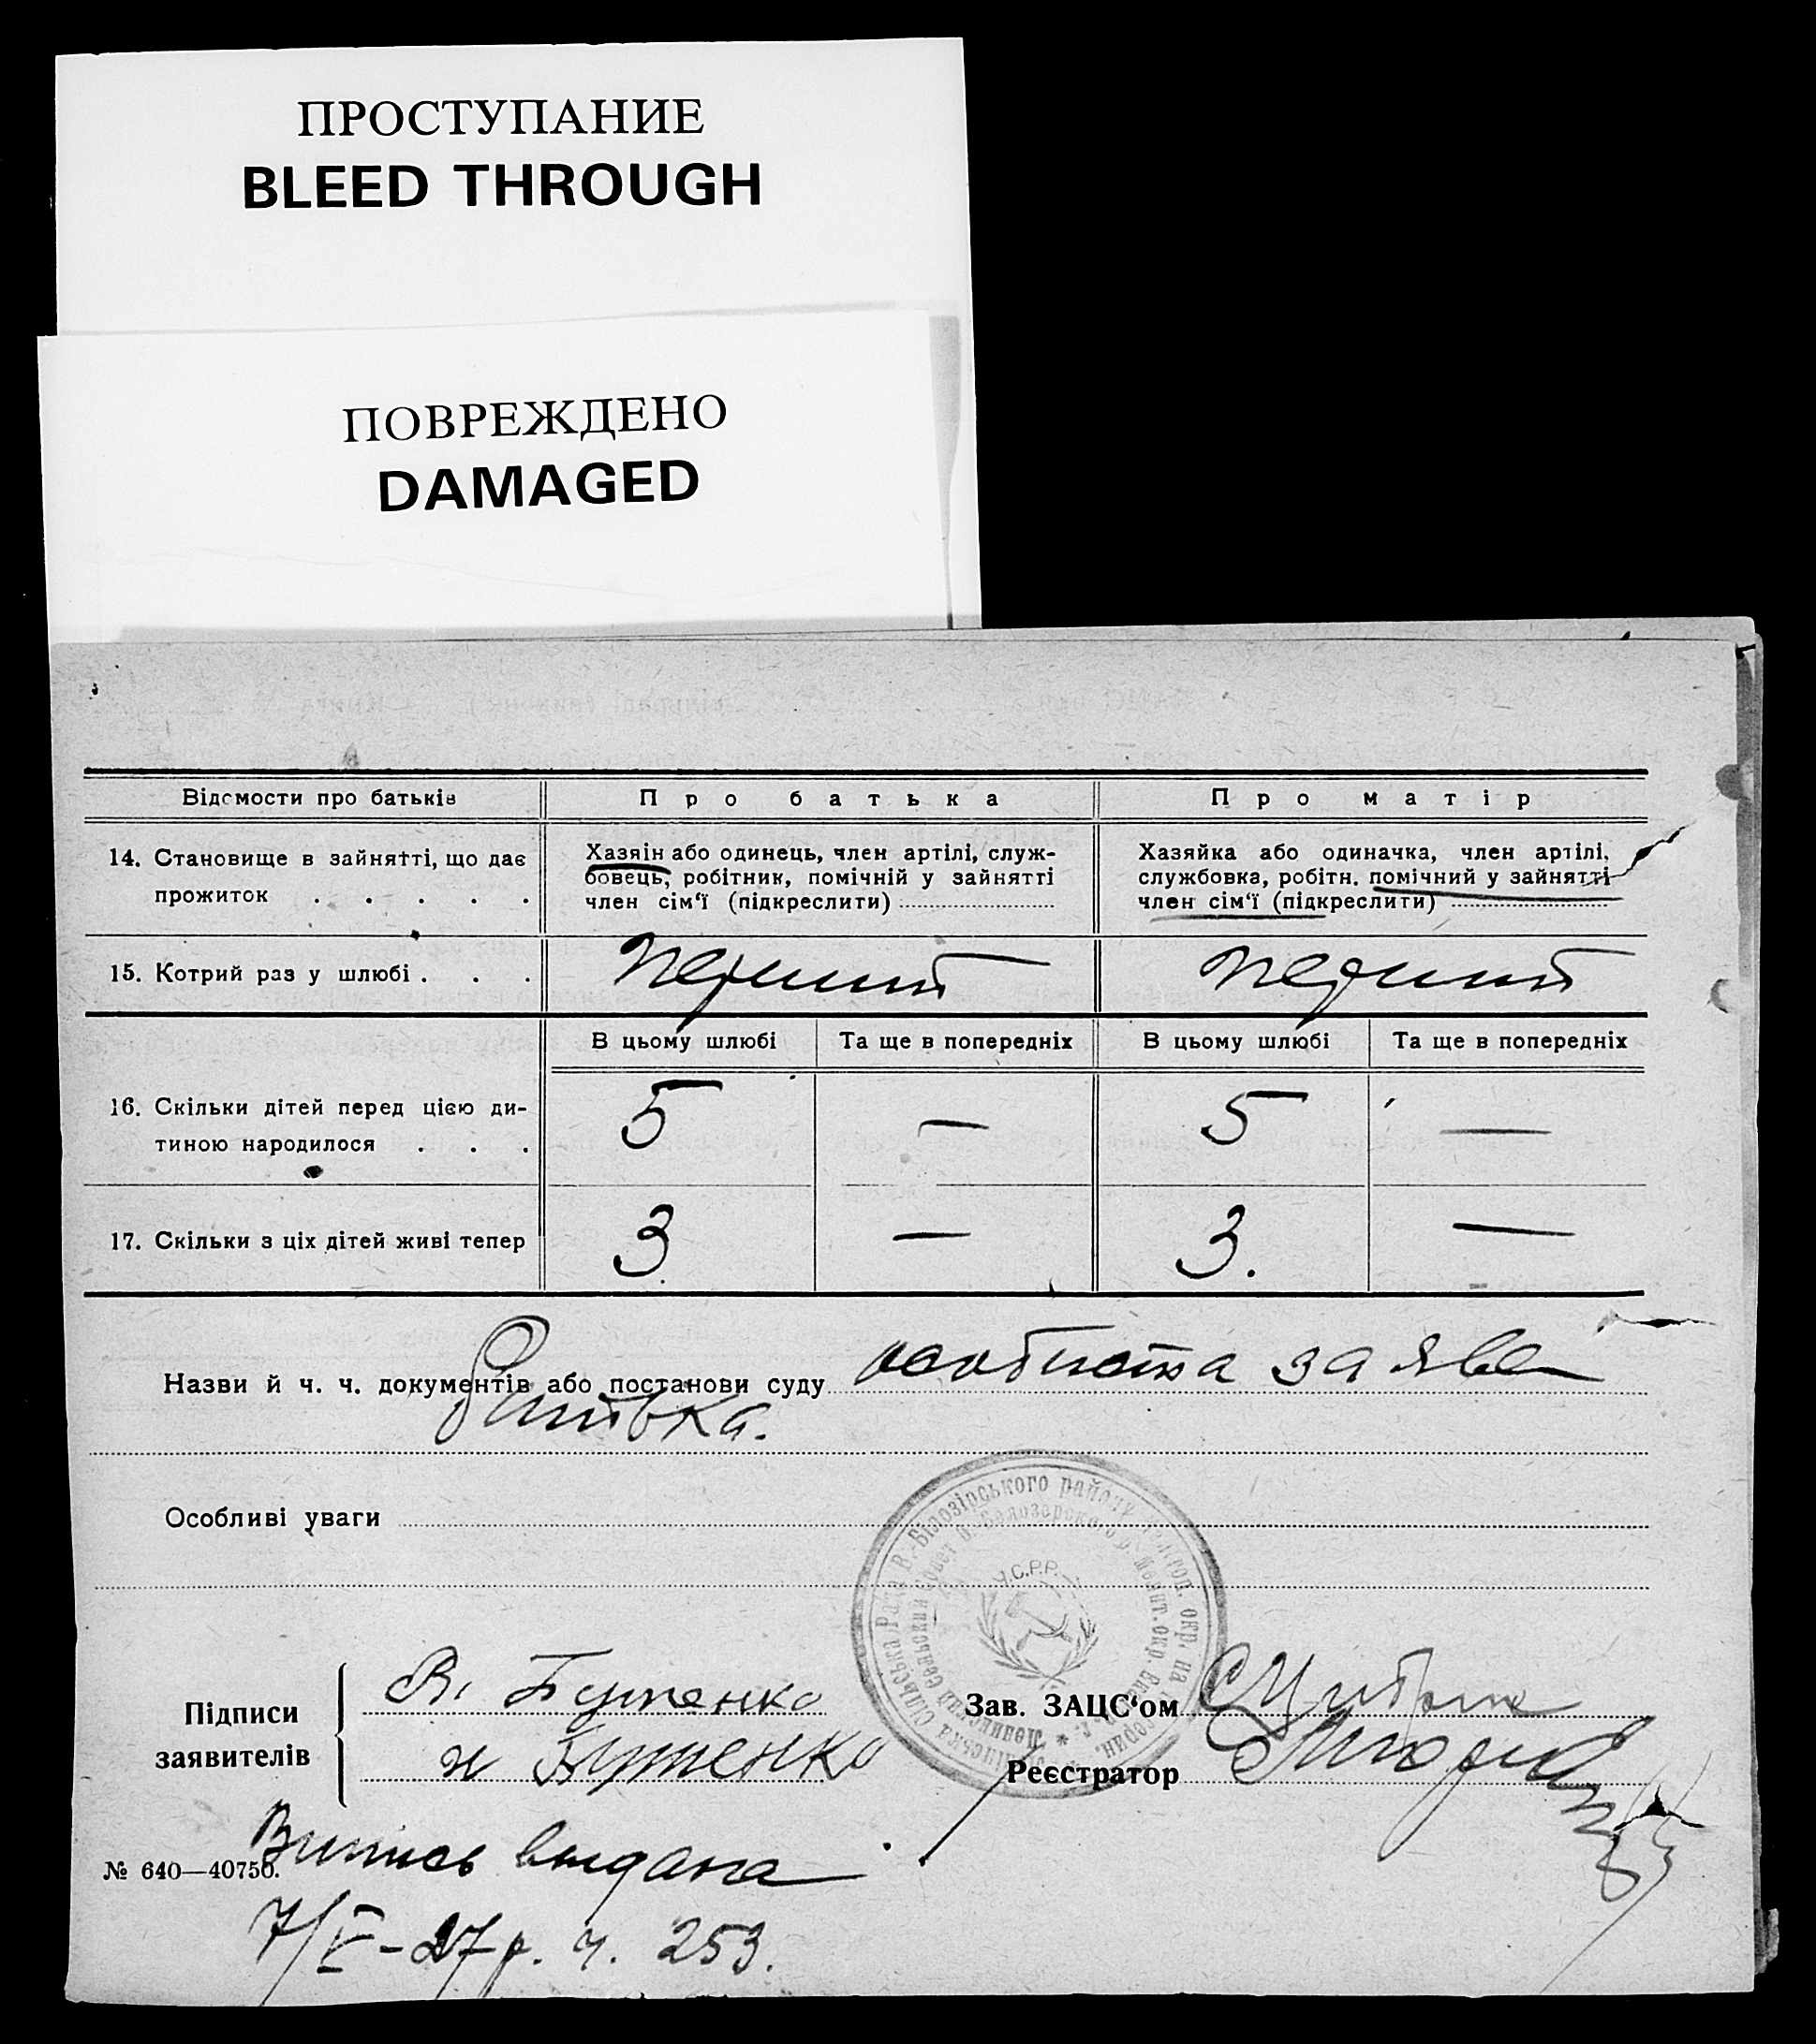 ПРОСТУПАНИЕ
BLEED THROUGH
ПОВРЕЖДЕНО
DAMAGED
Відомости про батьків
Про батька
Про матір
14. Становище в зайнятті, що дає
прожиток . . . . .
Хазяін або одинець, член артілі, служ-
бовець, робітник, помічній у зайнятті
член сім‘ї (підкреслити)
Хазяйка або одиначка, член артілі,
службовка, робітн. помічний у зайнятті
член сім‘ї (підкреслити)
15. Котрий раз у шлюбі . . .
перший
перший
В цьому шлюбі
Та ще в попередніх
В цьому шлюбі
Та ще в попередніх
16. Скільки дітей перед цією ди-
тиною народилося . . .
5
—
5
—
17. Скільки з ціх дітей живі тепер
3
—
3.
—
Назви й ч. ч. документів або постанови суду особиста заява
батька.
Особливі уваги
В.-Білозірського району
У.С.Р.Р.
Підписи
заявителів
В. Бутенко
н Бутенко
Зав. ЗАЦС‘ом
Реєстратор
Випись выдана
№ 640—40750.
7/V–27 р. ч. 253.